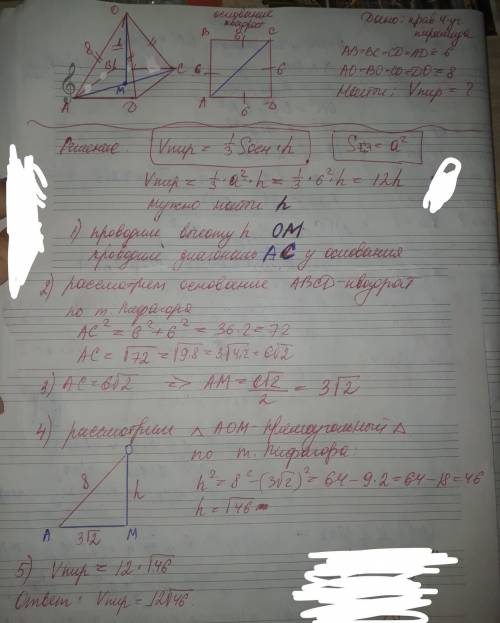 основание
квадрат
Дано: прав 4-уг.
пирамида
AB=BC=CD=AD=6
AO=BO=CO=DO=8
Найти: Vпир = ?
O
8
h
B
M
C
A
D
B
6
C
6
6
A
6
D
Решение.
Vпир = 1/3 Sосн · h
S = a²
Vпир = 1/3 · a² · h = 1/3 · 6² · h = 12h
нужно найти h
1) проводим высоту h OM
проводим диагональ AC у основания
2) рассмотрим основание ABCD-квадрат
по т. Пифагора
AC² = 6² + 6² = 36·2 = 72
AC = √72 = √9·8 = 3√4·2 = 6√2
3) AC = 6√2 => AM = 6√2/2 = 3√2
4) рассмотрим △ AOM-прямоугольный △
по т. Пифагора:
h² = 8² - (3√2)² = 64 - 9·2 = 64 - 18 = 46
h = √46
O
8
h
A
3√2
M
5) Vпир = 12·√46
Ответ: Vпир = 12√46.